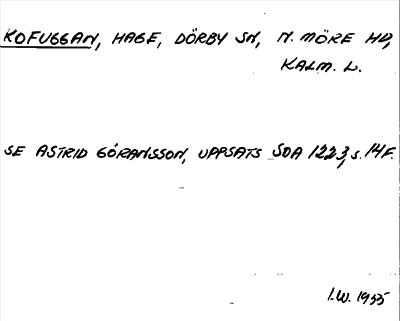 KOFUGGAN, HAGE, DÖRBY SN, N. MÖRE HD,
KALM. L.
SE ASTRID GÖRANSSON, UPPSATS SOA 1223, S. 14 F.
I.W. 1955